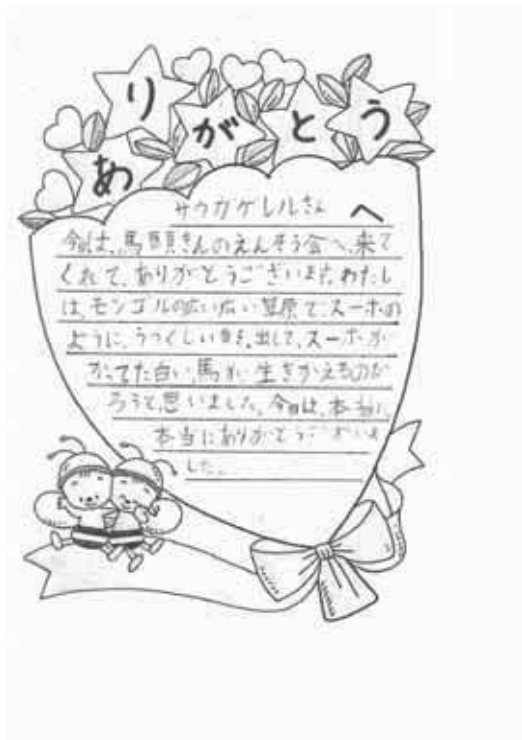 ありがとう
サウガゲレルさん へ
今日は、馬頭きんのえんそう会へ、来て
くれて、ありがとうございます。わたし
は、モンゴルの広い広い草原で、スーホの
ように、うつくしい音を、出して、スーホが
かってた白い、馬が、生きかえるのか
ろうと、思いました。今日は、本当に、
本当にありがとうございま
した。